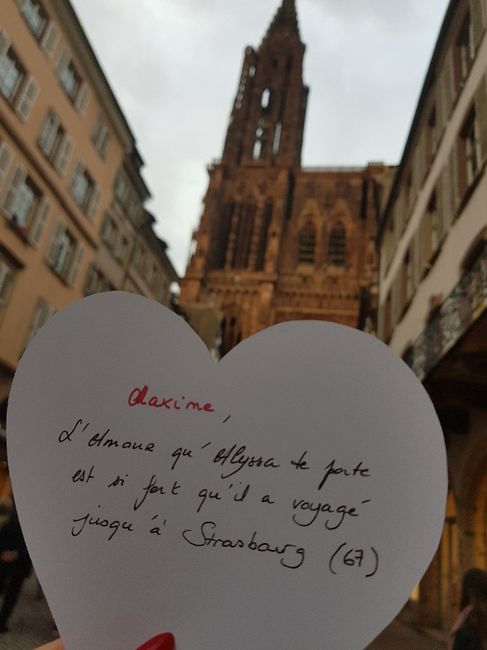 Maxime,
L'Amour qu'Alyssa te porte
est si fort qu'il a voyagé
jusqu'à Strasbourg (67)